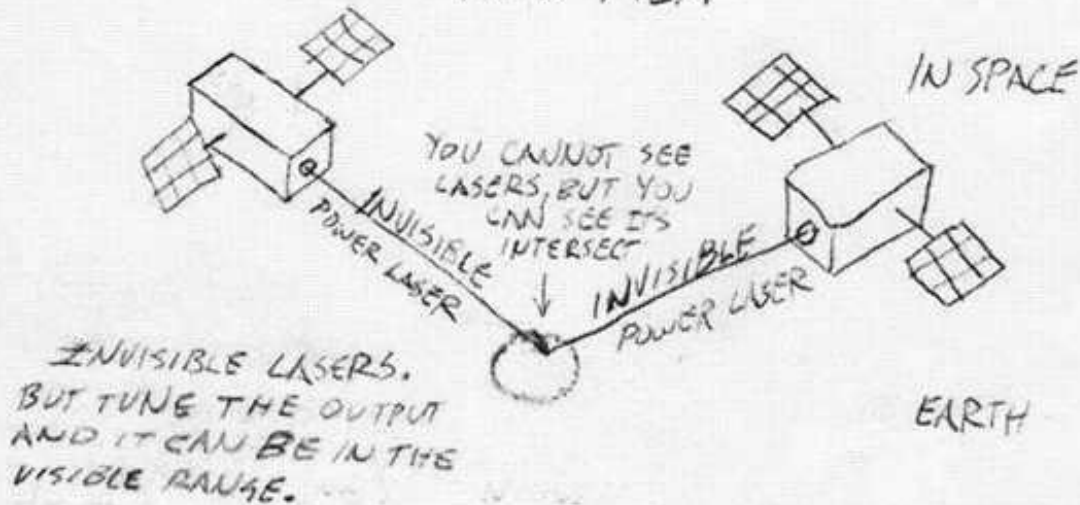 IN SPACE
YOU CANNOT SEE
LASERS, BUT YOU
CAN SEE ITS
INTERSECT
INVISIBLE
POWER LASER
INVISIBLE
POWER LASER
INVISIBLE LASERS.
BUT TUNE THE OUTPUT
AND IT CAN BE IN THE
VISIBLE RANGE.
EARTH